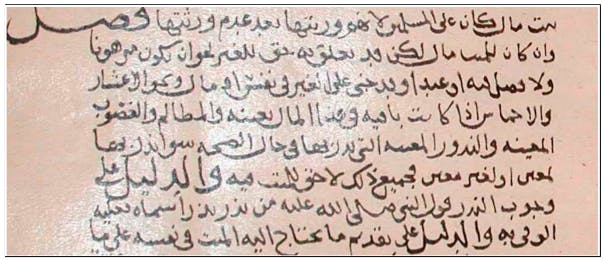 بيت مال كان على المسلمين لا هو ورثتها بعد عدم ورثتها فصل
وان كان للميت مال لكن قد تعلق به حق للغير نحو ان يكون مرهونا
ولا فضل فيه او عبدا وقد جنى على الغير في نفس او مال ونحو الاعشار
والاخماس اذا كانت باقية وهذا المال بعينه والمظالم والغصوب
المعينه والنذور المعينه التي نذر بها في حال الصحه سوا نذر بها
لمعين او لغير معين فجميع ذلك لا حق للميت فيه والدليل على
وجوب النذر قول النبي صلى الله عليه من نذر نذرا سماه فعليه
الوفى به والدليل على تقديم ما يحتاج اليه الميت في نفسه على ما